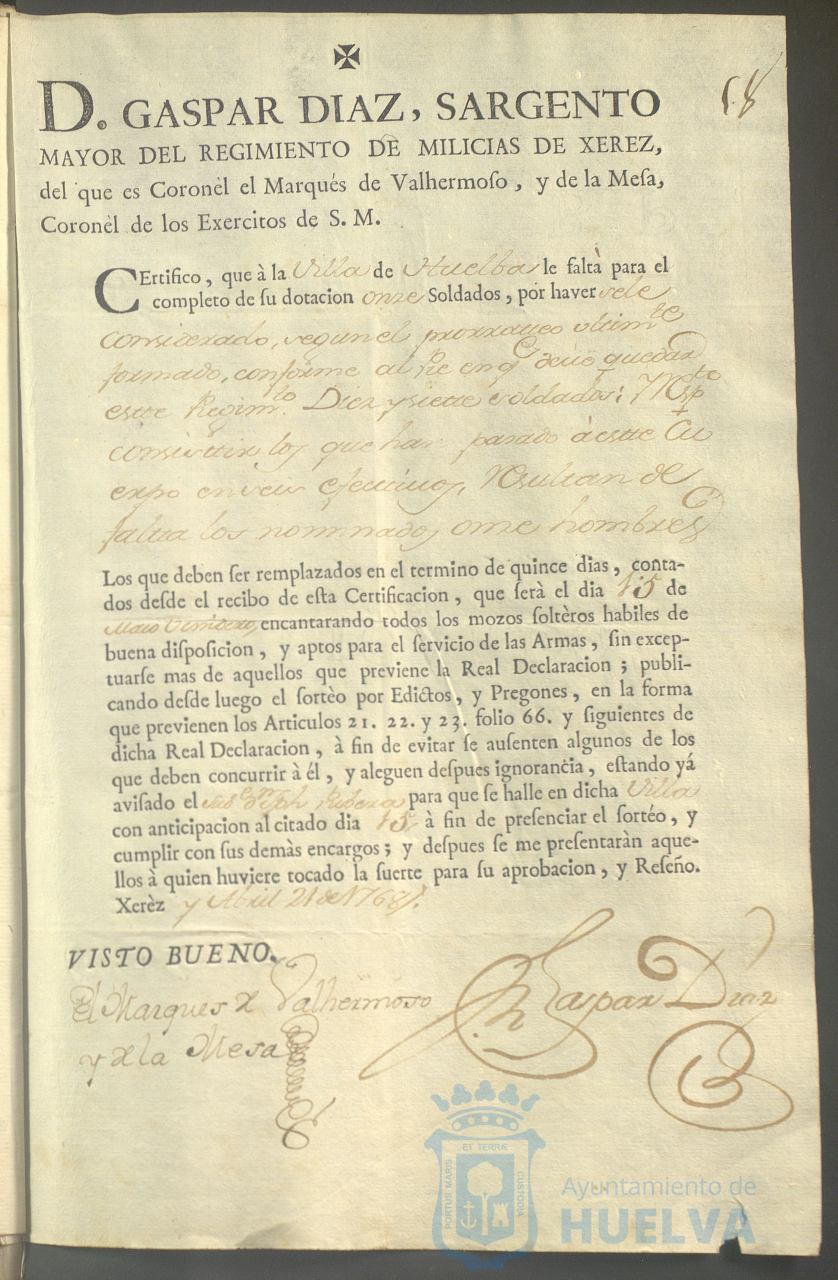 ✠
58
D. GASPAR DIAZ, SARGENTO
MAYOR DEL REGIMIENTO DE MILICIAS DE XEREZ,
del que es Coronèl el Marqués de Valhermoſo, y de la Meſa,
Coronèl de los Exercitos de S. M.
CErtifico, que à la Villa de Huelba le faltà para el
completo de ſu dotacion onze Soldados, por haverſele
considerado, segun el prorrateo ultimte
formado, conforme al Pie en q deve quedar
este Regimto. Diez y siette soldados; 
consistir los que han pasado à este Cu
erpo en seis efectivos, resultan de
falta los nominados onze hombres
Los que deben ſer remplazados en el termino de quince dias, conta-
dos deſde el recibo de eſta Certificacion, que ſerà el dia 15 de
Maio, encantarando todos los mozos ſoltèros habiles de
buena diſpoſicion, y aptos para el ſervicio de las Armas, ſin excep-
tuarſe mas de aquellos que previene la Real Declaracion; publi-
cando deſde luego el ſortèo por Edictos, y Pregones, en la forma
que previenen los Articulos 21. 22. y 23. folio 66. y ſiguientes de
dicha Real Declaracion, à fin de evitar ſe auſenten algunos de los
que deben concurrir à él, y aleguen deſpues ignorancia, eſtando yá
aviſado el Ribera para que ſe halle en dicha Villa
con anticipacion al citado dia 15 à fin de preſenciar el ſortéo, y
cumplir con ſus demàs encargos; y deſpues ſe me preſentaràn aque-
llos à quien huviere tocado la ſuerte para ſu aprobacion, y Reſeño.
Xerèz y Abril 21 de 1768.
VISTO BUENO.
El Marques de Valhermoso
y de la Mesa
Gaspar Diaz
ET TERRÆ
PORTUS MARIS
CUSTODIA
Ayuntamiento de
HUELVA